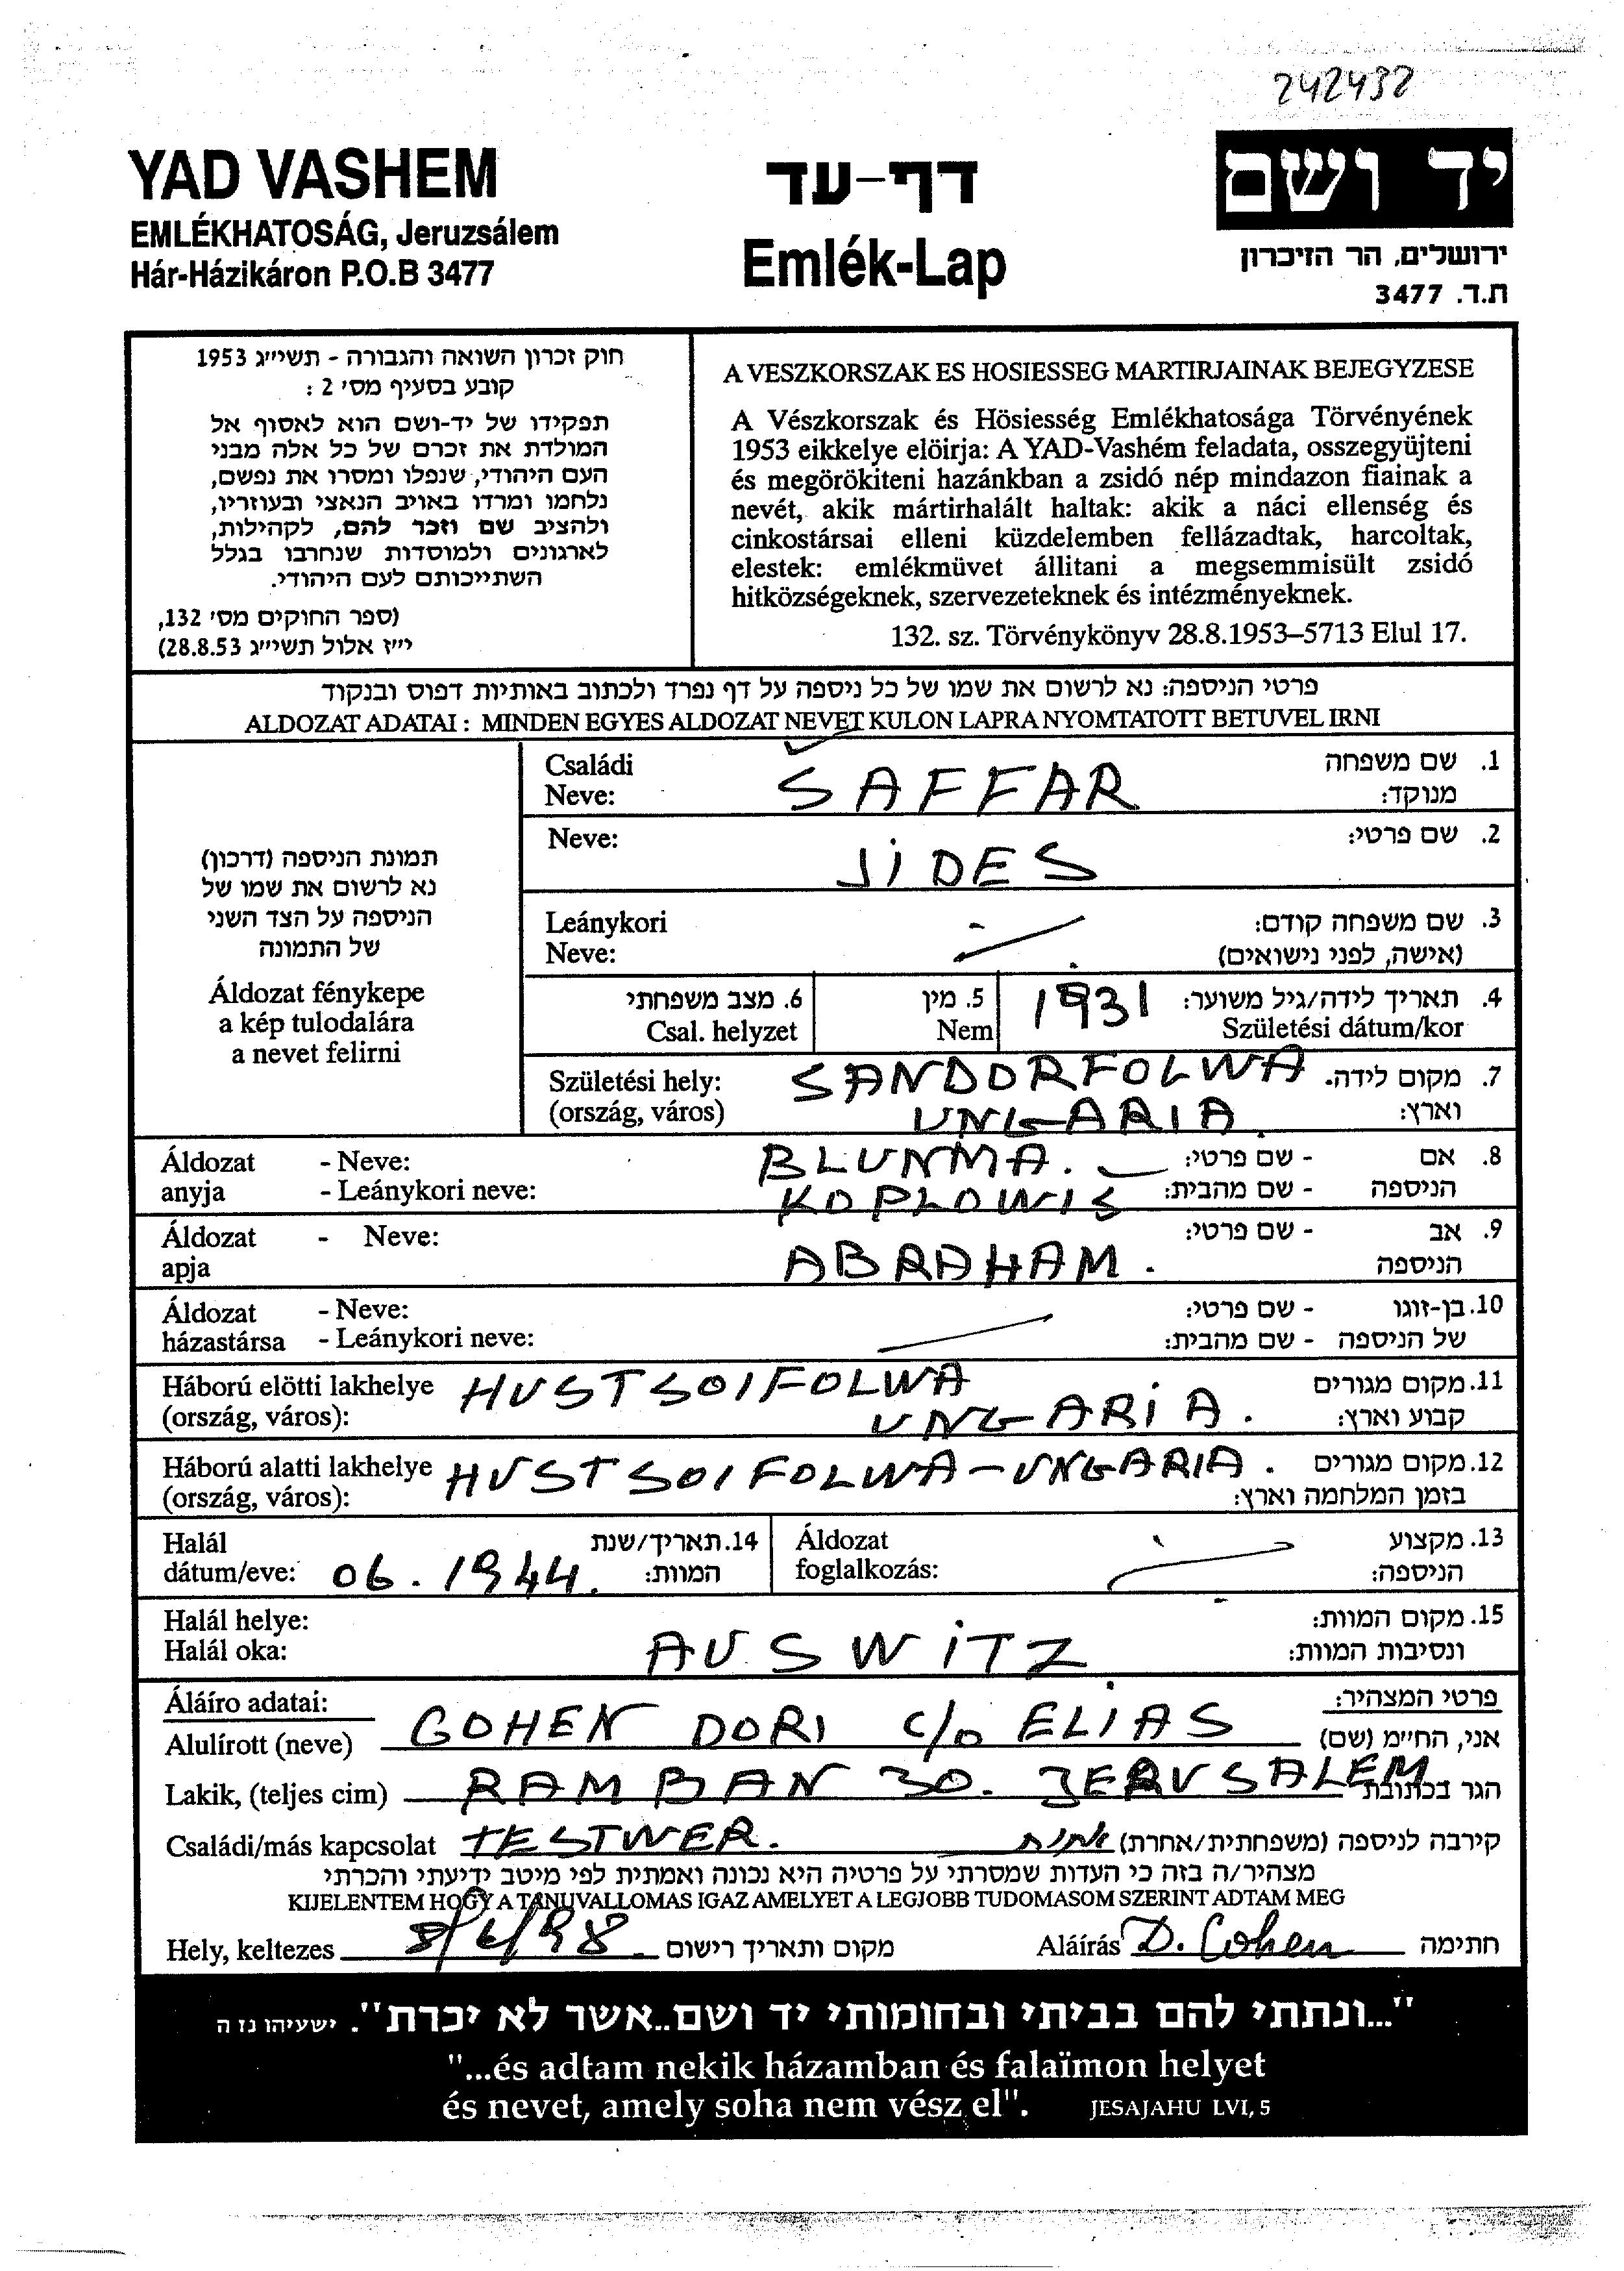 242432
YAD VASHEM
EMLÉKHATOSÁG, Jeruzsálem
Hár-Házikáron P.O.B 3477
דף-עד
Emlék-Lap
יד ושם
ירושלים, הר הזיכרון
ת.ד. 3477
חוק זכרון השואה והגבורה - תשי״ג 1953
קובע בסעיף מס׳ 2 :
תפקידו של יד-ושם הוא לאסוף אל
המולדת את זכרם של כל אלה מבני
העם היהודי, שנפלו ומסרו את נפשם,
נלחמו ומרדו באויב הנאצי ובעוזריו,
ולהציב שם וזכר להם, לקהילות,
לארגונים ולמוסדות שנחרבו בגלל
השתייכותם לעם היהודי.
(ספר החוקים מס׳ 132,
י״ז אלול תשי״ג 28.8.53)
A VESZKORSZAK ES HOSIESSEG MARTIRJAINAK BEJEGYZESE
A Vészkorszak és Hösiesség Emlékhatosága Törvényének
1953 eikkelye elöirja: A YAD-Vashém feladata, osszegyüjteni
és megörökiteni hazánkban a zsidó nép mindazon fiainak a
nevét, akik mártirhalált haltak: akik a náci ellenség és
cinkostársai elleni küzdelemben fellázadtak, harcoltak,
elestek: emlékmüvet állitani a megsemmisült zsidó
hitközségeknek, szervezeteknek és intézményeknek.
132. sz. Törvénykönyv 28.8.1953–5713 Elul 17.
פרטי הניספה: נא לרשום את שמו של כל ניספה על דף נפרד ולכתוב באותיות דפוס ובנקוד
ALDOZAT ADATAI : MINDEN EGYES ALDOZAT NEVET KULON LAPRA NYOMTATOTT BETUVEL IRNI
תמונת הניספה (דרכון)
נא לרשום את שמו של
הניספה על הצד השני
של התמונה
Áldozat fénykepe
a kép tulodalára
a nevet felirni
Családi
Neve:
SAFFAR
1. שם משפחה
מנוקד:
Neve:
JIDES
2. שם פרטי:
Leánykori
Neve:
3. שם משפחה קודם:
(אישה, לפני נישואים)
6. מצב משפחתי
Csal. helyzet
5. מין
Nem
1931
4. תאריך לידה/גיל משוער:
Születési dátum/kor
Születési hely:
(ország, város)
SANDORFOLWA
UNGARIA.
7. מקום לידה
וארץ:
Áldozat - Neve:
anyja - Leánykori neve:
BLUNMA.
KOPLOWIS
8. אם - שם פרטי:
הניספה - שם מהבית:
Áldozat - Neve:
apja
ABRAHAM.
9. אב - שם פרטי:
הניספה
Áldozat - Neve:
házastársa - Leánykori neve:
10. בן-זוגו - שם פרטי:
של הניספה - שם מהבית:
Háború elötti lakhelye
(ország, város):
HUSTSOIFOLWA
UNGARIA.
11. מקום מגורים
קבוע וארץ:
Háború alatti lakhelye
(ország, város):
HUSTSOIFOLWA-UNGARIA.
12. מקום מגורים
בזמן המלחמה וארץ:
Halál
dátum/eve:
06.1944.
14. תאריך/שנת
המוות:
Áldozat
foglalkozás:
13. מקצוע
הניספה:
Halál helye:
Halál oka:
AUSWITZ
15. מקום המוות:
ונסיבות המוות:
Áláíro adatai:
פרטי המצהיר:
Alulírott (neve) COHEN DORI c/o ELIAS אני, החי״מ (שם)
Lakik, (teljes cim) RAMBAN 30. JERUSALEM הגר בכתובת
Családi/más kapcsolat TESTWER. אחות קירבה לניספה (משפחתית/אחרת)
מצהיר/ה בזה כי העדות שמסרתי על פרטיה היא נכונה ואמתית לפי מיטב ידיעתי והכרתי
KIJELENTEM HOGY A TANUVALLOMAS IGAZ AMELYET A LEGJOBB TUDOMASOM SZERINT ADTAM MEG
Hely, keltezes 8/6/98 מקום ותאריך רישום Aláírás D. Cohen חתימה
"...ונתתי להם בביתי ובחומותי יד ושם..אשר לא יכרת". ישעיהו נז ה
"...és adtam nekik házamban és falaïmon helyet
és nevet, amely soha nem vész el". JESAJAHU LVI, 5